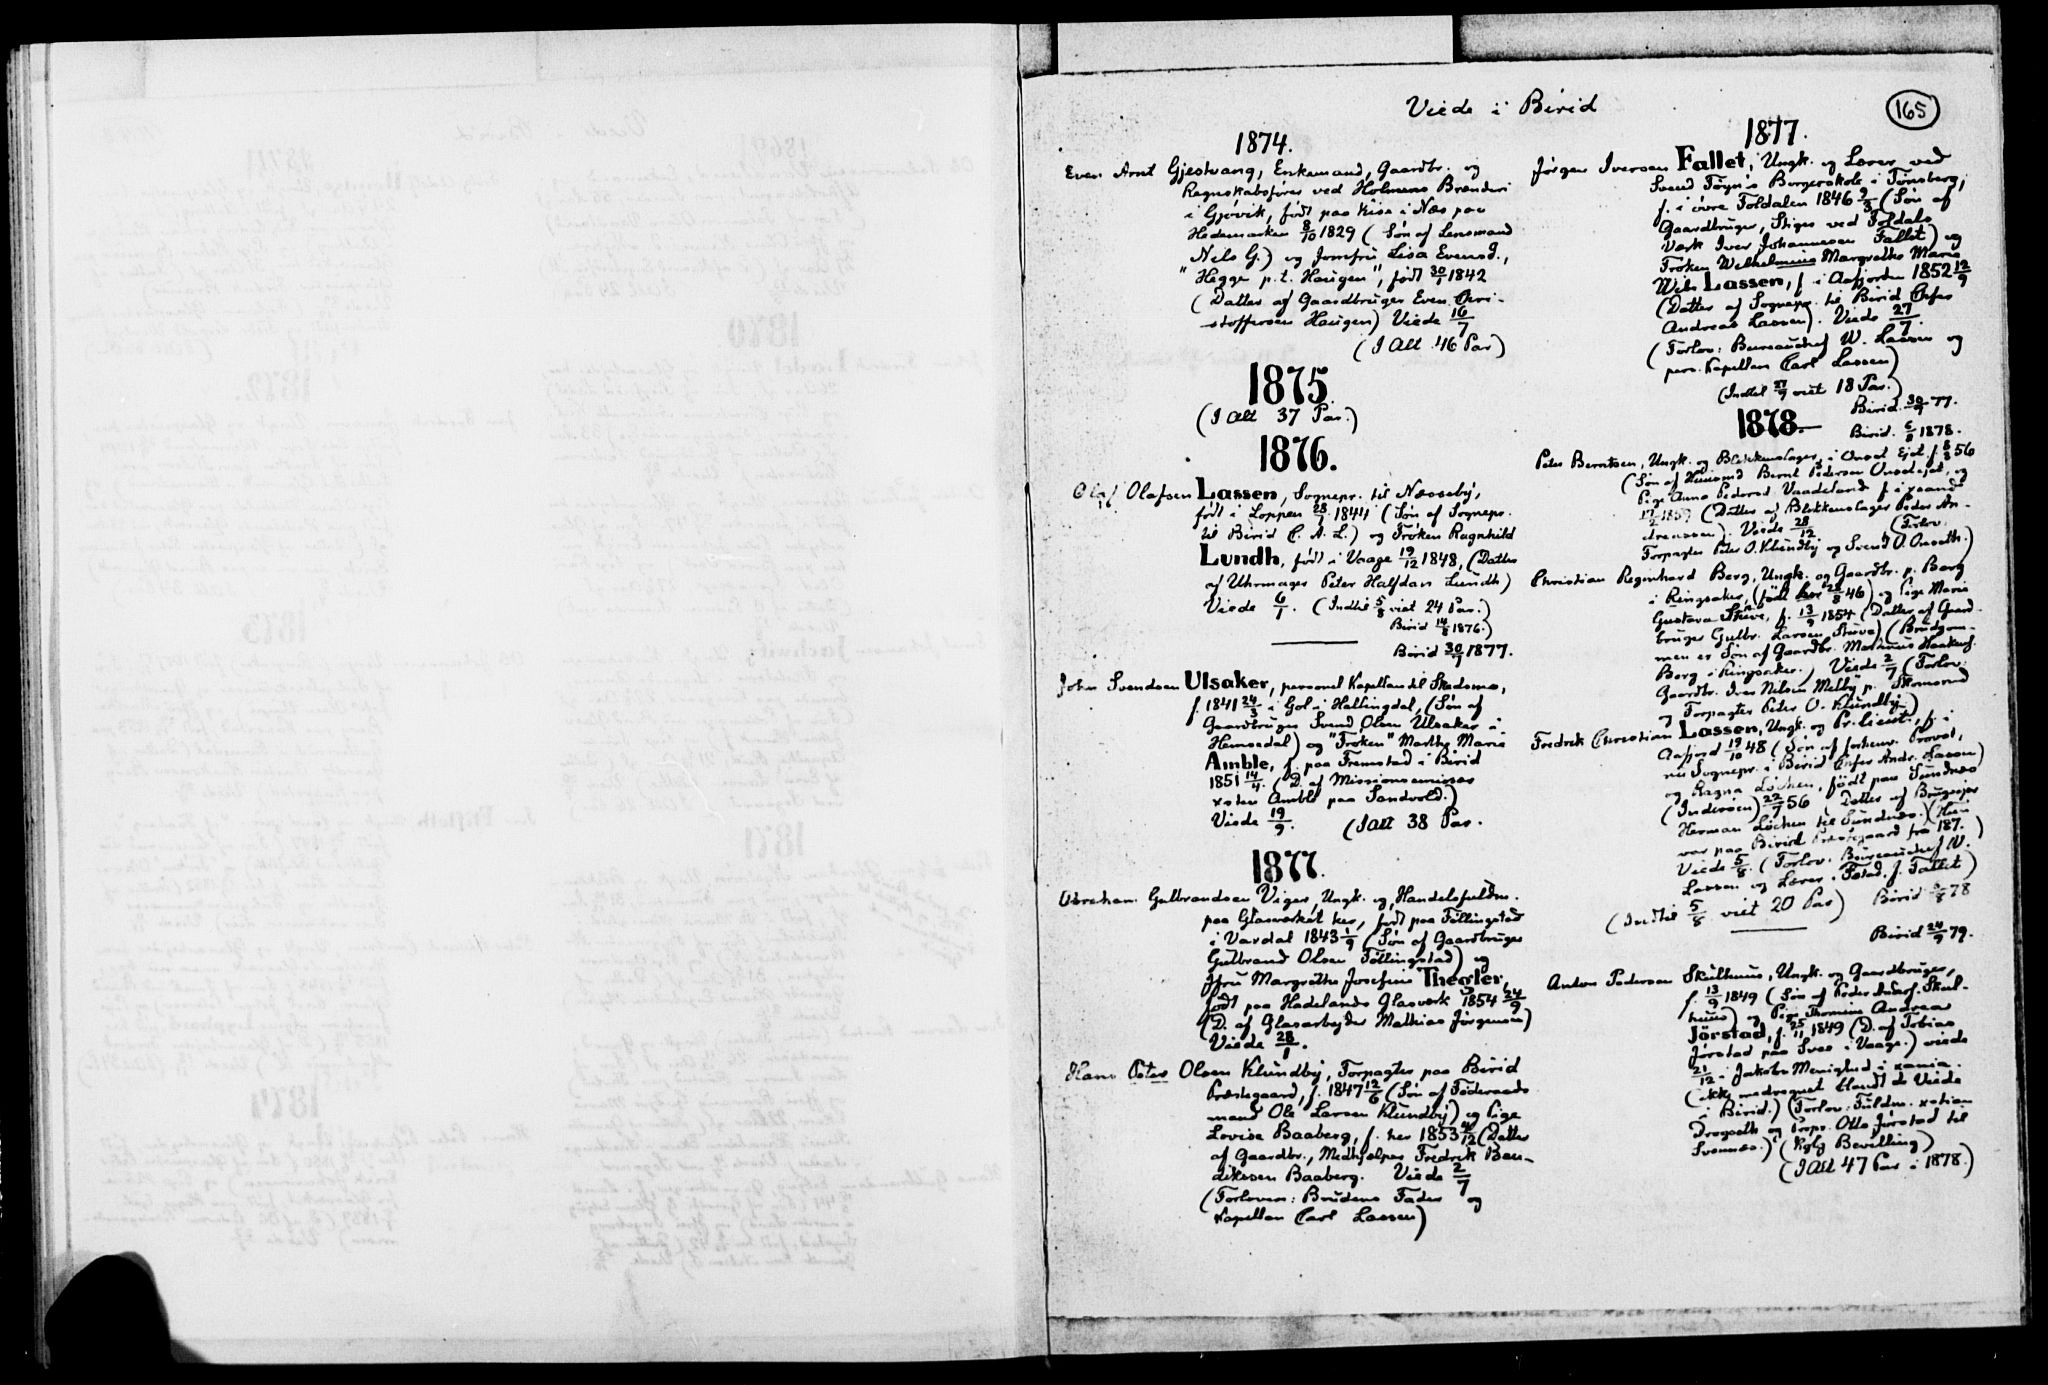 Viede i Birid
165
1874.
Even Arnt Gjestvang, Enkemand, Gaardbr. og
Regnskabsfører ved Holmens Brænderi
i Gjøvik, født paa Kise i Næs paa
Hedemarken 8/10 1829 (Søn af Lensmand
Nils G.) og Jomfru Lisa Evensd.,
"Hegge p.t. Haugen", født 30/1 1842
(Datter af Gaardbruger Even Chri-
stoffersen Haugen) Viede 16/7
(I Alt 46 Par)
1875.
(I Alt 37 Par.)
1876.
Olaf Olafsen Lassen, Sognepr. til Næsseby,
født i Loppen 28/1 1844 (Søn af Sognepr.
til Birid C. A. L.) og Frøken Ragnhild
Lundh, født i Vaage 19/12 1848, (Datter
af Uhrmager Peter Halfdan Lundh)
Viede 6/1. (Indtil 5/8 viet 24 Par.)
Birid 14/8 1876.)
Birid 30/9 1877.
John Svendsen Ulsaker, personel Kapellan til Skedsmo,
f. 1841 24/3 i Gol i Hallingdal, (Søn af
Gaardbruger Svend Olsen Ulsaker i
Hemsedal) og "Frøken" Marthe Marie
Amble, f. paa Fremstad i Birid
1851 14/4. (D. af Missionsemissær
Amble paa Sandvold.)
Viede 19/9. (I alt 38 Par.
1877.
Abraham Gulbrandsen Viger, Ungk. og Handelsfuldm.
paa Glasværket her, født paa Føllingstad
i Vardal 1843 1/9 (Søn af Gaardbruger
Gulbrand Olsen Føllingstad) og
Jfru Margrethe Josefine Thegler,
født paa Hadelands Glasværk 1854 24/9
(D. af Glasarbejder Mathias Jørgensen)
Viede 28/1.
Hans Peter Olsen Klundby, Forpagter paa Birid
Præstegaard, f. 1847 12/6 (Søn af Føderaads-
mand Ole Larsen Klundby) og Pige
Lovise Baaberg, f. her 1853 4/12 (Datter
af Gaardbr., Medhjælper Fredrik Ben-
diksen Baaberg. Viede 2/7
(Forlovere: Brudens Fader og
Kapellan Carl Lassen)
1877.
Jørgen Iversen Fallet, Ungk. og Lærer ved
Svend Føyn's Borgerskole i Tønsberg,
f. i øvre Foldalen 1846 9/3 (Søn af
Gaardbruger, Stiger ved Foldals
Værk Iver Johannesen Fallet) og
Frøken Wilhelmine Margrethe Marie
Wils Lassen, f. i Aafjorden 1852 12/9
(Datter af Sognepr. til Birid Chfer
Andreas Lassen). Viede 27/7.
(Forlov: Bureauchef W. Lassen og
pers. Kapellan Carl Lassen)
(Indtil 27/9 viet 18 Par.)
Birid 30/9 77.
1878.
Birid. 6/8 1878.
Peter Berntsen, Ungk. og Blikkenslager, i Onset Ejd. f. 8/3 56
(Søn af Husmand Bernt Pedersen Onsetejet, og
Pige Anna Pedersd. Vaadeland f. i xsand
17/2 1859 (Datter af Blikkenslager Peder An-
dreassen). Viede 28/12 (Forlov.
Forpagter Peter O. Klundby og Svend O. Onseth.)
Christian Reginhard Berg, Ungk. og Gaardbr. p. Berg
i Ringsaker, (født her 28/8 46) og Pige Marie
Gustava Stuve, f. 13/9 1854 (Datter af Gaard-
bruger Gulbr. Larsen Stuve) (Brudgom-
men er Søn af Gaardbr. Martinus Haakens.
Berg i Ringsaker.) Viede 2/7 (Forlov:
Gaardbr. Iver Nilsen Melby p. Skomsrud
og Forpagter Peter O. Klundby.)
Fredrik Christian Lassen, Ungk. og Pr. lieut., f. i
Aafjord 19/10 48 (Søn af forhenv. Provst,
nu Sognepr. i Birid Chfer Andr. Lassen)
og Ragna Løchen, født paa Sundnæs
(Inderøen) 22/7 56 (Datter af Brugsejer
Herman Løchen til Sundnæs.) (Hun
var paa Birid Præstegaard fra 187. )
Viede 5/8. (Forlov. Bureauchef W.
Lassen og Lærer J. Fallet)
(Indtil 5/8 viet 20 Par) Birid 6/8 78
Birid 24/9 79.
Anton Pedersen Skulhuus, Ungk. og Gaardbruger,
f. 13/9 1849 (Søn af Peder Anders. Skul-
huus) og Pige Thomine Andrea
Jörstad, f. 25/11 1849 (D. af Tobias
Jørstad paa Svee i Vaage.) viede
21/12 i Jakobs Menighed i xania.
(ikke medregnet blandt de Viede
i Birid.) (Forlov: Fuldm. xstian
Dregseth og Prop. Otto Jørstad til
Svennæs.) (Kglg Bevilling)
(I Alt 47 Par i 1878.)